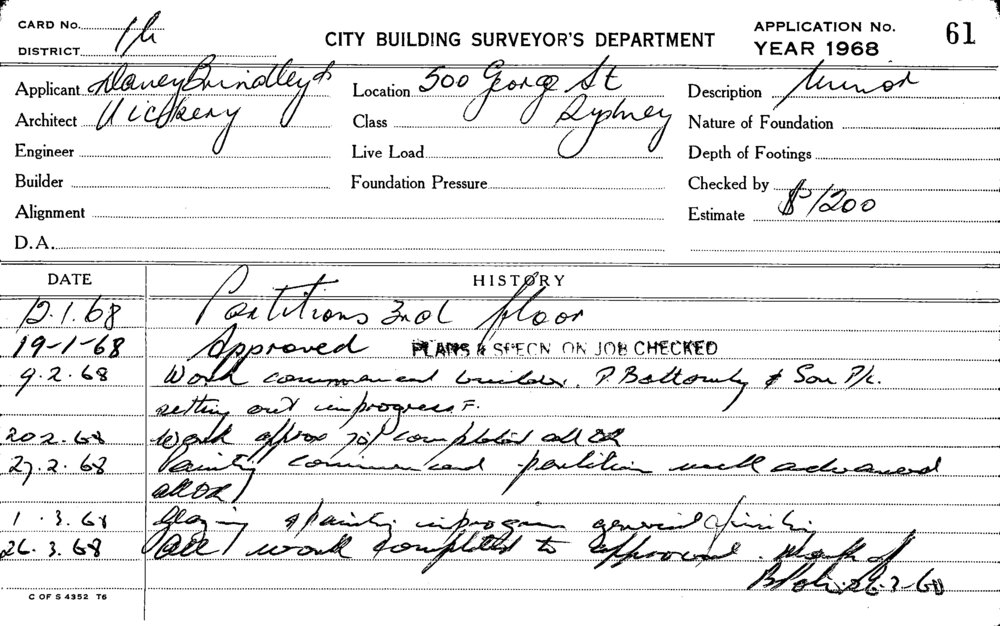 CARD No.
DISTRICT
CITY BUILDING SURVEYOR'S DEPARTMENT
APPLICATION No.
YEAR 1968
61
Applicant Brindley &
Architect Vickery
Engineer
Builder
Alignment
D.A.
Location 500 George St
Class Sydney
Live Load
Foundation Pressure
Description Minor
Nature of Foundation
Depth of Footings
Checked by
Estimate $1200
DATE HISTORY
12.1.68 Partitions 3rd floor
19-1-68 Approved PLANS & SPECN ON JOB CHECKED
9.2.68 Work commenced builder. P. Bottomly & Son P/L.
setting out in progress
20.2.68 Work approx completed all OK
27.2.68 Painting commenced partition well advanced
all OK
1.3.68 Glazing & painting in progress general finishing
26.3.68 All work completed to approval.
C OF S 4352 T6